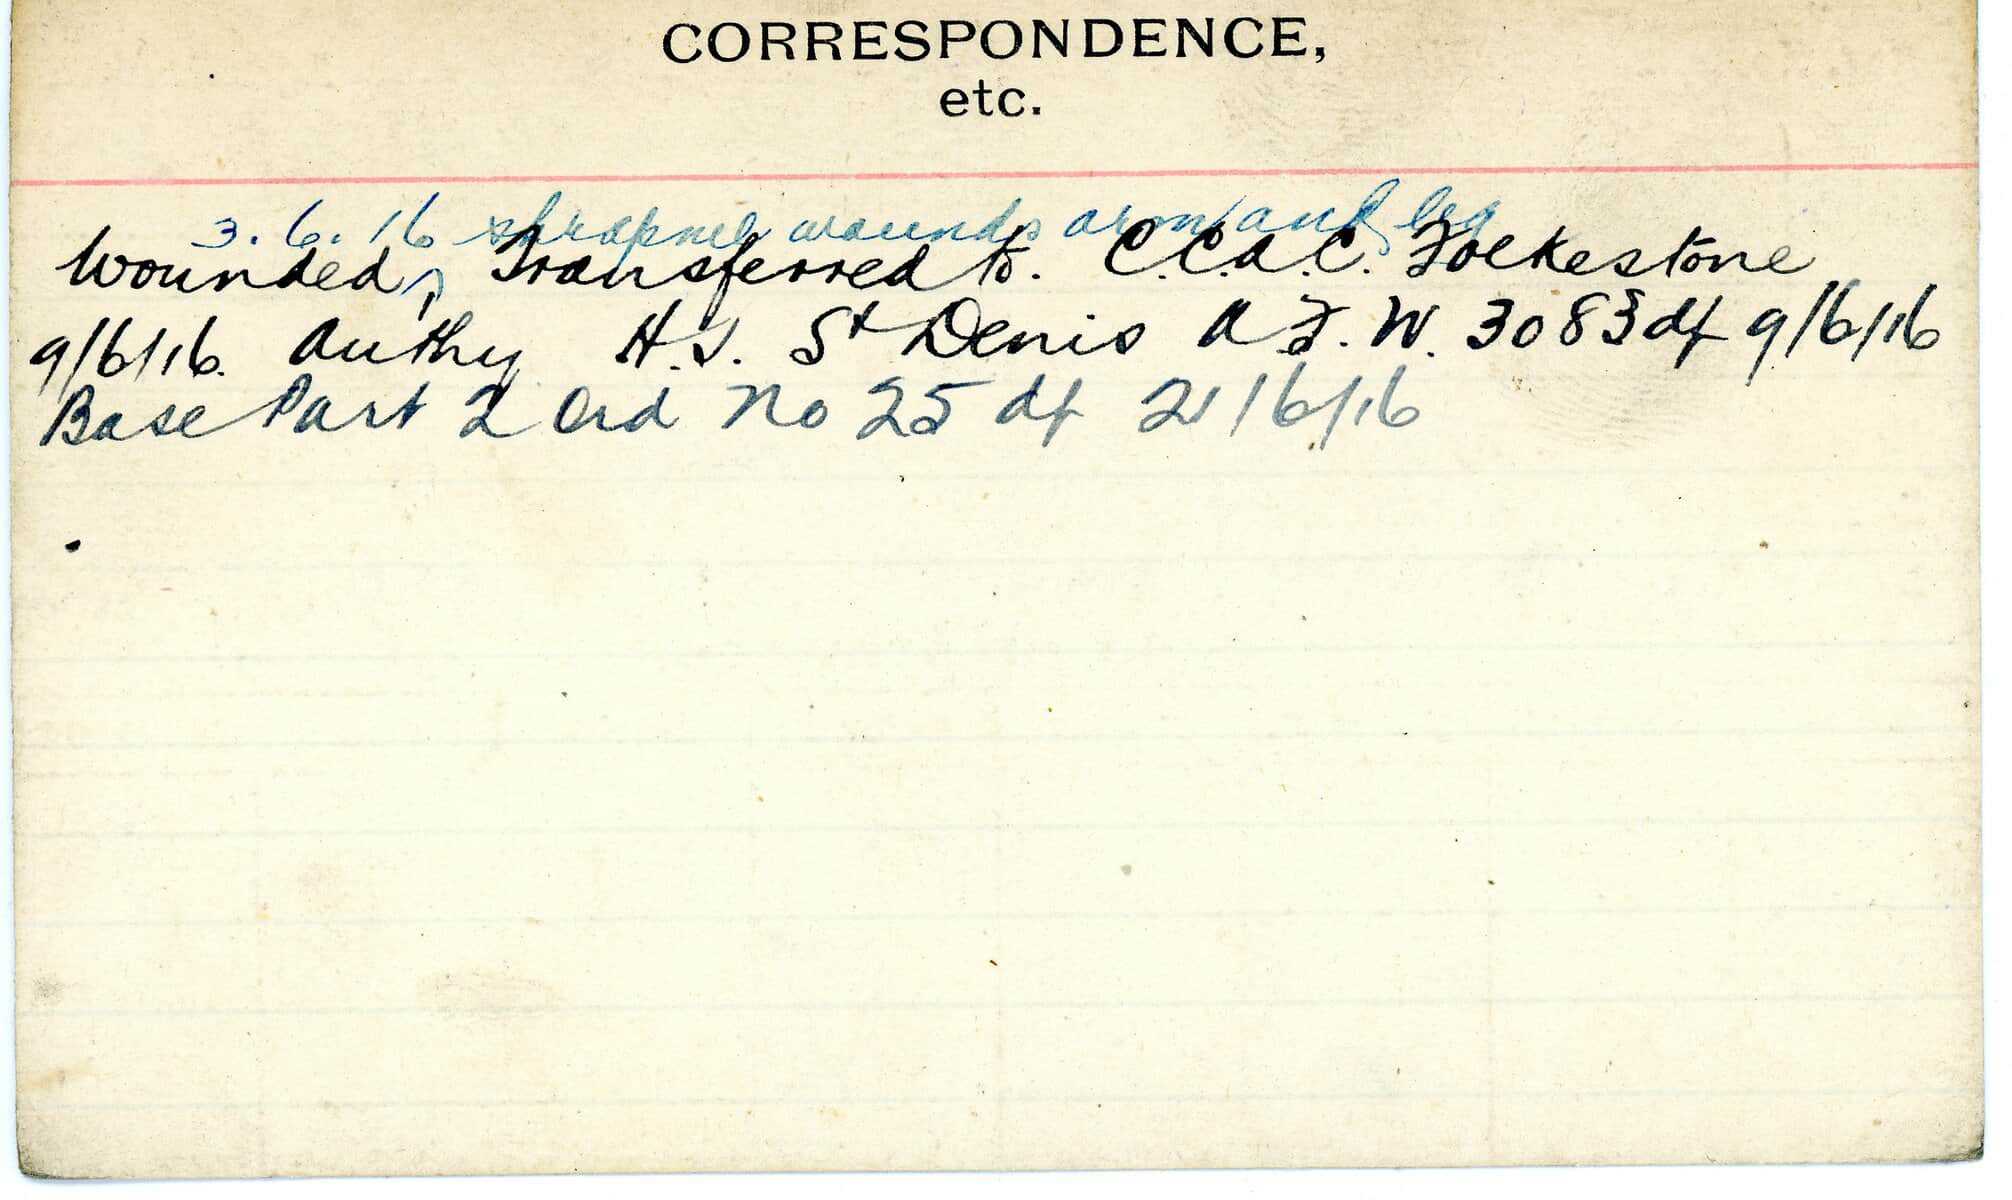 CORRESPONDENCE,
etc.
3.6.16 shrapnel wounds arm and leg
Wounded, Transferred to. C.C.A.C. Folkestone
9/6/16. Authy H.S. St Denis A.F.W. 3083 df 9/6/16
Base Part 2 Ord No 25 df 21/6/16